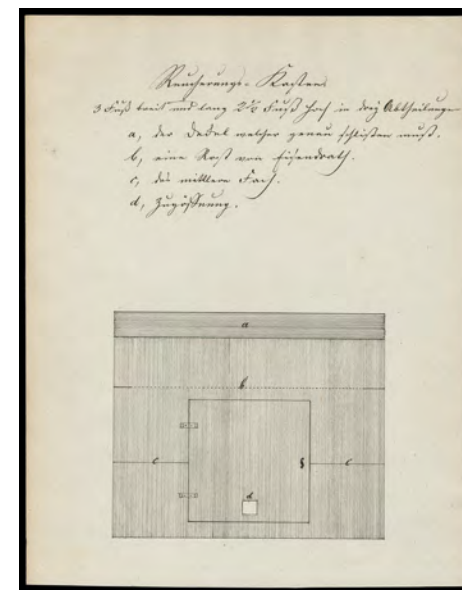 Reucherungs-Kasten
3 Fuß breit und lang 2½ Fuß hoch in drey Abtheilungen
a, der Dekel welcher genau schlißen muß.
b, eine Rost von Eisendrath.
c, die mittlere Fach.
d, Zugöffnung.
a
b
c c
d